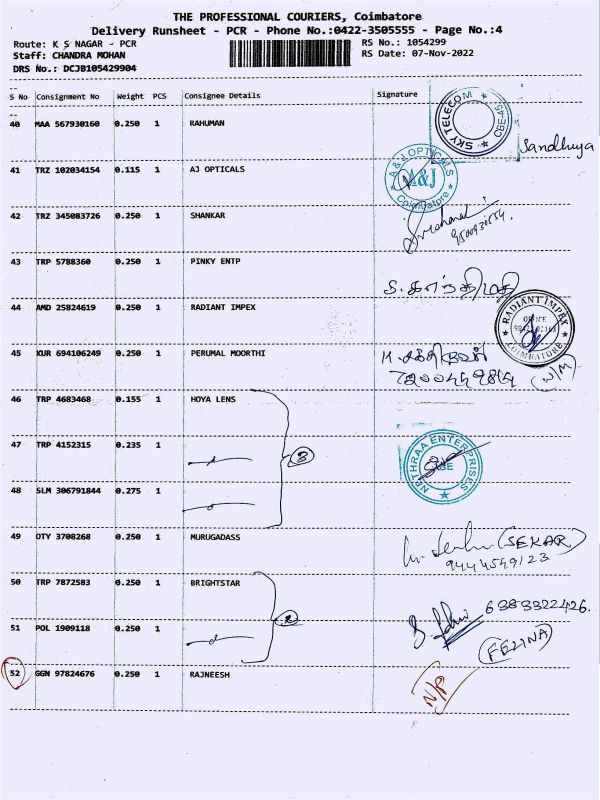 THE PROFESSIONAL COURIERS, Coimbatore
Delivery Runsheet - PCR - Phone No.:0422-3505555 - Page No.:4
Route: K S NAGAR - PCR RS No.: 1054299
Staff: CHANDRA MOHAN RS Date: 07-Nov-2022
DRS No.: DCJB105429904
S No Consignment No Weight PCS Consignee Details Signature
40 MAA 567930160 0.250 1 RAHUMAN SKY TELECOM CBE-45 Sandhuya
41 TRZ 102034154 0.115 1 AJ OPTICALS A & J OPTICALS A&J Coimbatore
42 TRZ 345083726 0.250 1 SHANKAR
43 TRP 5788360 0.250 1 PINKY ENTP
44 AMD 25824619 0.250 1 RADIANT IMPEX RADIANT IMPEX COIMBATORE
45 KUR 694106249 0.250 1 PERUMAL MOORTHI (N/M)
46 TRP 4683468 0.155 1 HOYA LENS
47 TRP 4152315 0.235 1 3 NETHRAA ENTERPRISES
48 SLM 306791844 0.275 1
49 OTY 3708268 0.250 1 MURUGADASS (SEKAR)
9444549123
50 TRP 7872583 0.250 1 BRIGHTSTAR 6383322426.
51 POL 1909118 0.250 1 2 (FEZINA)
52 GGN 97824676 0.250 1 RAJNEESH N/P